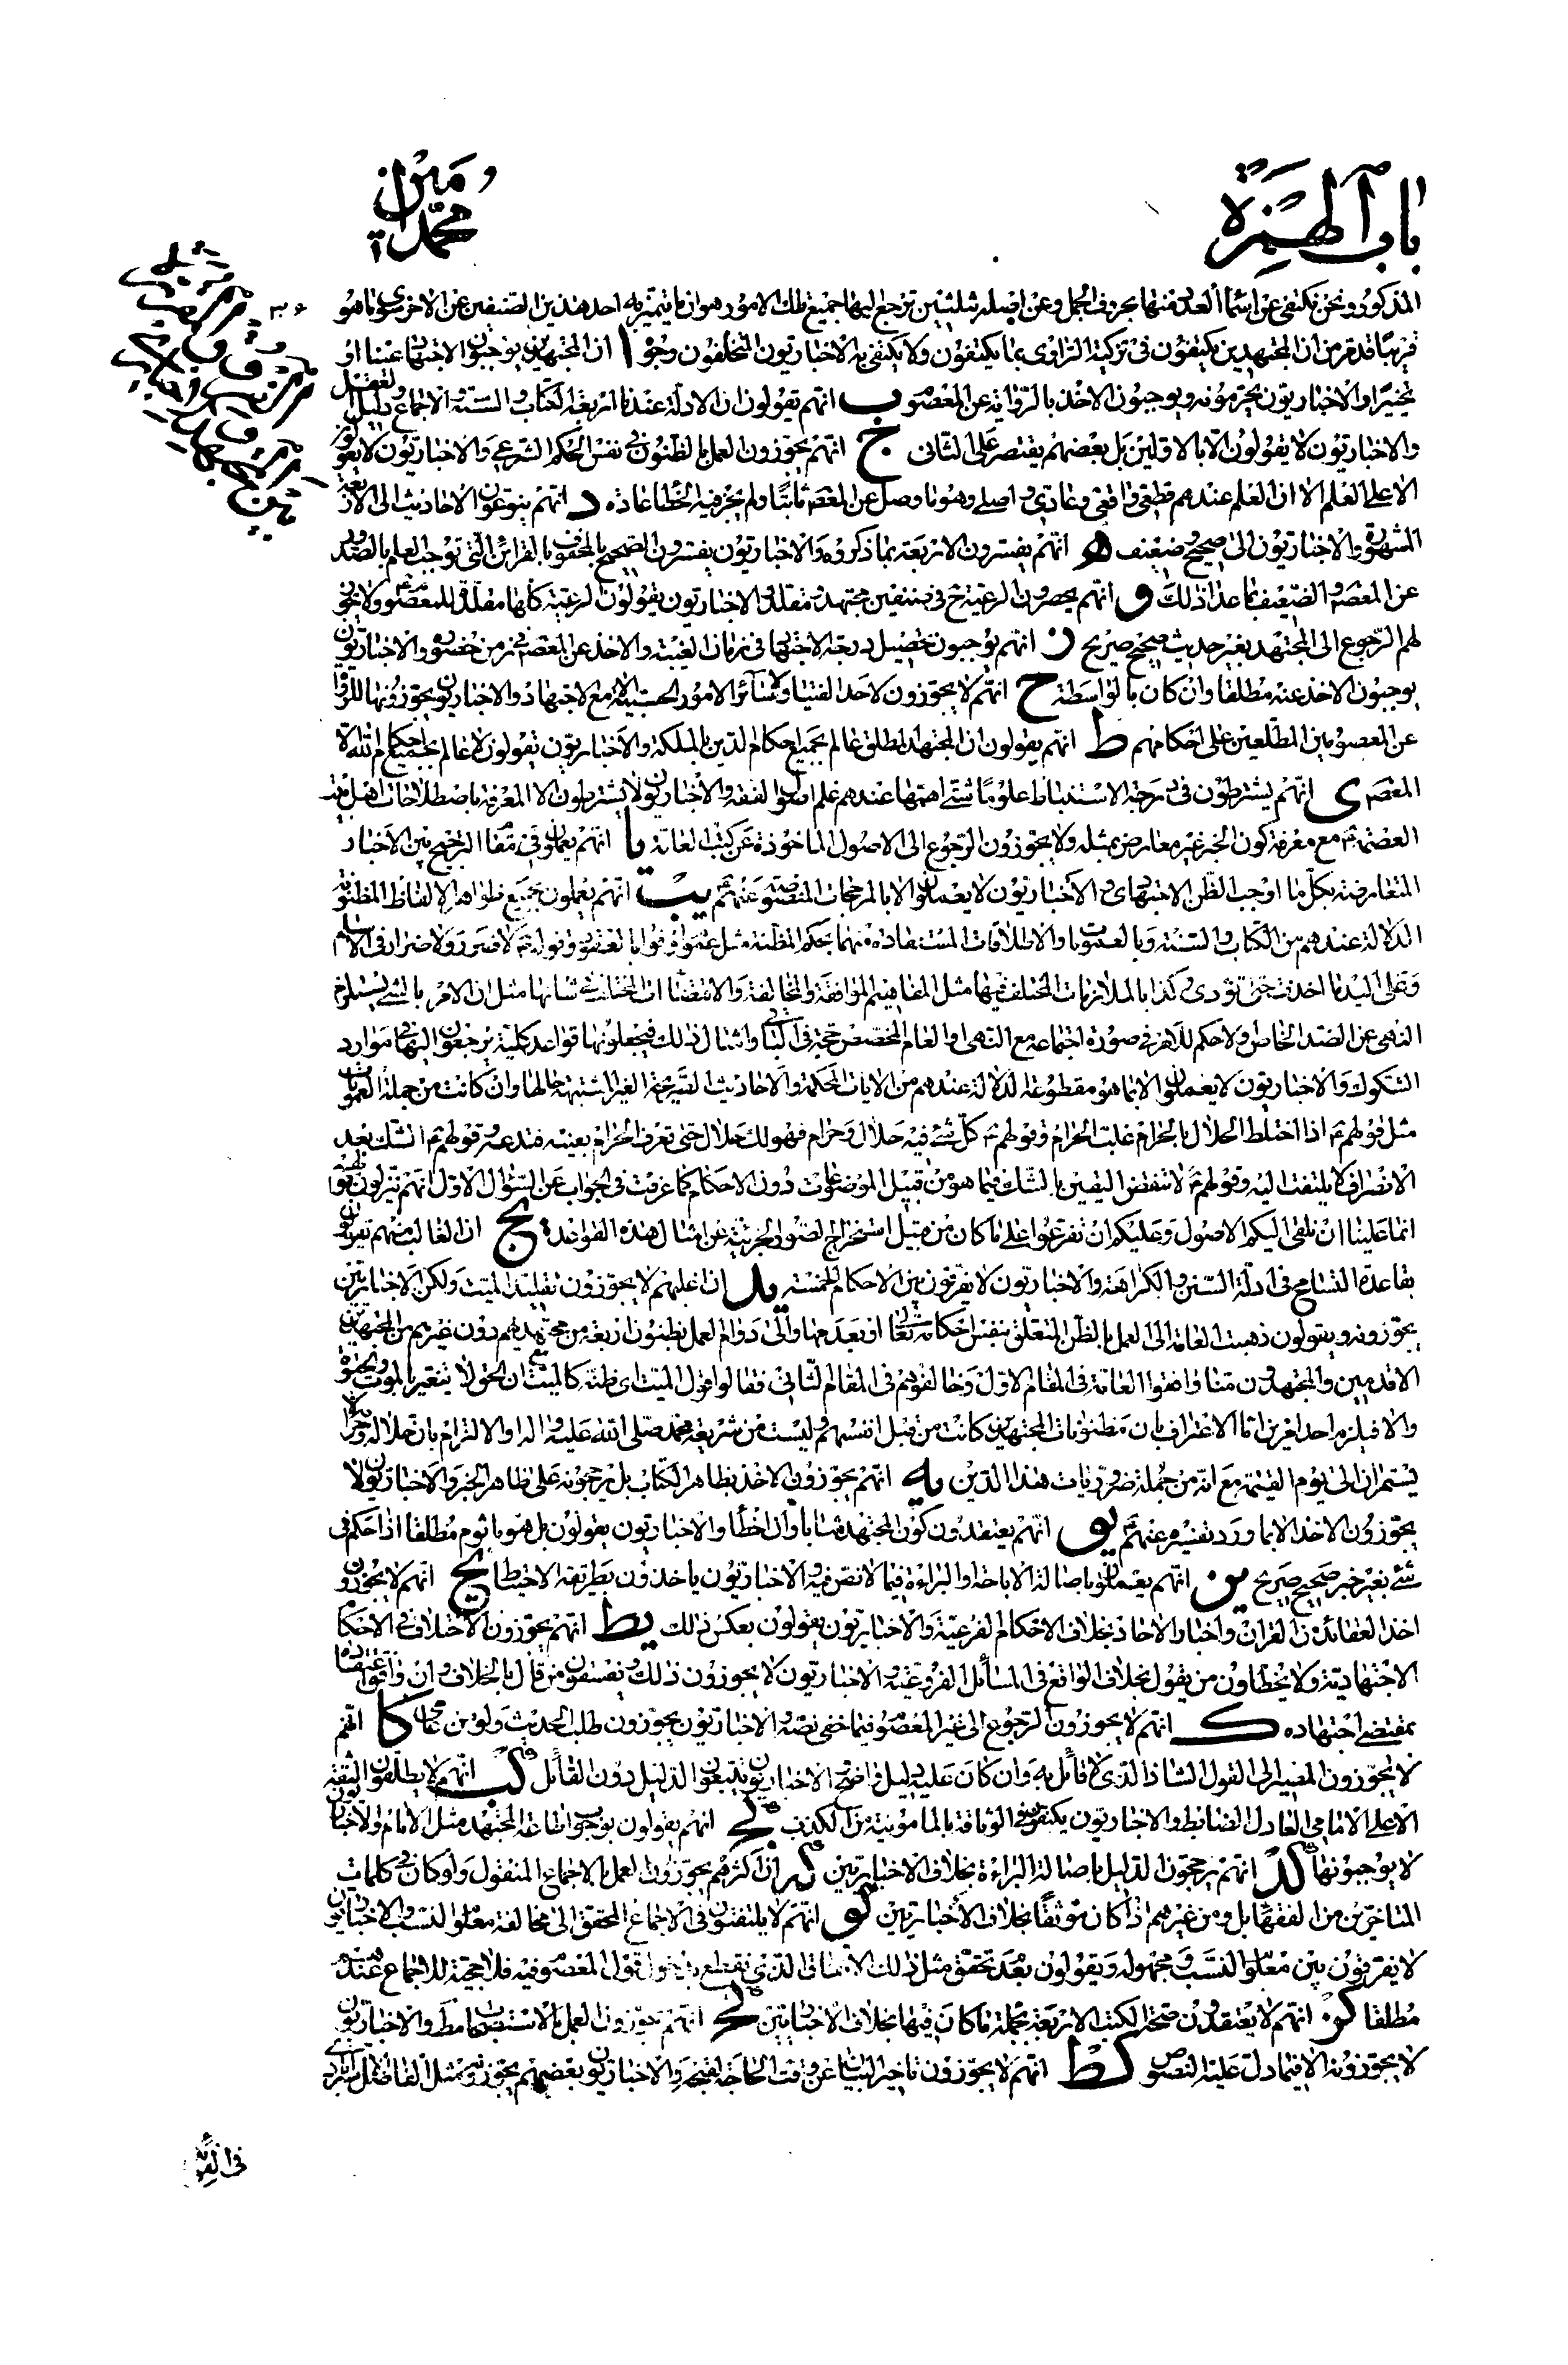 باب الهمزة
محمد امین
٣٦
المذكور ونحن نكتفى عن اسماء العدد فيها بحروف الجمل وعن اصله ترجع اليها جميع تلك الامور هو ان ما يتميز به احد هذين الصنفين عن الاخر سوى ما هو
قريبا قد مر من ان المجتهدين يكتفون فى تزكية الراوى بما يكتفون ولا يكتفى به الاخباريون المتخلفون وجوه ا ان المجتهدين يوجبون الاجتهاد عينا او
تخييرا والاخباريون يحرمونه ويوجبون الاخذ بالرواية عن المعصوم ب انهم يقولون ان الادلة عندنا اربعة الكتاب والسنة والاجماع ودليل العقل
والاخباريون لا يقولون الا بالاولين بل بعضهم يقتصر على الثانى ج انهم يجوزون العمل بالظنون فى نفس الحكم الشرعى والاخباريون لا يعولون
الا على العلم الا ان العلم عندهم قطعى واقعى وعادى واصلى وهو ما وصل عن المعصوم ثابتا ولم يجز فيه الخطا عادة د انهم ينوعون الاحاديث الى الاربعة
المشهورة والاخباريون الى صحيح وضعيف ه انهم يفسرون الاربعة بما ذكروه والاخباريون يفسرون الصحيح بالمحفوف بالقرائن التى توجب العلم بالصدور
عن المعصوم والضعيف بما عدا ذلك و انهم يحصرون الرعية ح فى صنفين مجتهد ومقلد والاخباريون يقولون الرعية كلها مقلد للمعصوم ولا يجوز
لهم الرجوع الى المجتهد بغير حديث صحيح صريح ز انهم يوجبون تحصيل درجة الاجتهاد فى زمان الغيبة والاخذ عن المعصوم فى زمن حضوره والاخباريون
يوجبون الاخذ عنه مطلقا وان كان بالواسطة ح انهم لا يجوزون لاحد الفتيا ولا سائر الامور الحسبية الا مع الاجتهاد والاخباريون يجوزونها للرواة
عن المعصومين المطلعين على احكامهم ط انهم يقولون ان المجتهد المطلق عالم بجميع احكام الدين بالملكة والاخباريون يقولون لا عالم بجميع احكام الله الا
المعصوم ى انهم يشترطون فى درجة الاستنباط علوما شتى اهمها عندهم علم اصول الفقه والاخباريون لا يشترطون الا المعرفة باصطلاحات اهل بيت
العصمة مع معرفة كون الخبر غير معارض بمثله ولا يجوزون الرجوع الى الاصول الماخوذة عن كتب العامة يا انهم يعملون فى مقام الترجيح بين الاخبار
المتعارضة بكل ما اوجب الظن الاجتهادى والاخباريون لا يعملون الا بالمرجحات المنصوصة عنهم يب انهم يعملون بجميع ظواهر الالفاظ المظنونة
الدلالة عندهم من الكتاب والسنة وبالعمومات والاطلاقات المستفادة منهما بحكم المظنة مثل عموم اوفوا بالعقود وقوله لا ضرر ولا ضرار فى الاسلام
وعلى اليد ما اخذت حتى تؤدى وكذا بالملازمات المختلف فيها مثل المفاهيم الموافقة والمخالفة والاقتضاءات المختلف فى شانها مثل ان الامر بالشئ يستلزم
النهى عن الضد الخاص ولا حكم للامر فى صورة اجتماعه مع النهى او العام المخصص حجة فى الباقى وامثال ذلك فيجعلونها قواعد كلية يرجعون اليها فى موارد
الشكوك والاخباريون لا يعملون الا بما هو مقطوعة الدلالة عندهم من الايات المحكمة والاحاديث الصريحة الغير المشتبهة حالها وان كانت من جملة العمومات
مثل قولهم اذا اختلط الحلال بالحرام غلب الحرام وقولهم كل شئ فيه حلال وحرام فهو لك حلال حتى تعرف الحرام بعينه فتدعه وقولهم الشك بعد
الانصراف لا يلتفت اليه وقولهم لا تنقض اليقين بالشك فيما هو من قبيل الموضوعات دون الاحكام كما عرفت فى الجواب عن السؤال الاول انهم ينزلون قولهم
انما علينا ان نلقى اليكم الاصول وعليكم ان تفرعوا على ما كان من قبيل استخراج الصور الجزئية عن امثال هذه القواعد يج ان الغالب منهم يقولون
بقاعدة التسامح فى ادلة السنن والكراهة والاخباريون لا يفرقون بين الاحكام الخمسة يد ان اغلبهم لا يجوزون تقليد الميت ولكن الاخباريين
يجوزونه ويقولون ذهبت العامة الى العمل بالظن المتعلق بنفس احكامه تعالى او بعدمها والى دوام العمل بظنون اربعة من مجتهديهم دون غيرهم من المجتهدين
الاقدمين والمجتهدون منا وافقوا العامة فى المقام الاول وخالفوهم فى المقام الثانى فقالوا قول الميت اى ظنه كالميت مع ان الحق لا يتغير بالموت والحيوة
والا فيلزم احد امرين اما الاعتراف بان مظنونات المجتهدين كانت من قبل انفسهم وليست من شريعة محمد صلى الله عليه واله او الالتزام بان حلاله وحرامه لا
يستمران الى يوم القيمة مع انه من جملة ضروريات هذا الدين يه انهم يجوزون الاخذ بظاهر الكتاب بل يرجحونه على ظاهر الخبر والاخباريون لا
يجوزون الاخذ الا بما ورد تفسيره عنهم يو انهم يعتقدون كون المجتهد مثابا وان اخطأ والاخباريون يقولون بل هو ماثوم مطلقا اذا حكم فى
شئ بغير خبر صحيح صريح يز انهم يعملون باصالة الاباحة او البراءة فيما لا نص فيه والاخباريون ياخذون بطريقة الاحتياط يح انهم لا يجوزون
اخذ العقائد من القران واخبار الاحاد بخلاف الاحكام الفرعية والاخباريون يقولون بعكس ذلك يط انهم يجوزون الاختلاف فى الاحكام
الاجتهادية ولا يخطأون من يقول بخلاف الواقع فى المسائل الفروعية والاخباريون لا يجوزون ذلك ويفسقون من قال بالخلاف وان وافق اعتقاده
بمقتضى اجتهاده ك انهم لا يجوزون الرجوع الى غير المعصوم فيما خفى نصه والاخباريون يجوزون طلب الحديث ولو من عامى كا انهم
لا يجوزون المصير الى القول الشاذ الذى لا قائل به وان كان عليه دليل واضح والاخباريون يتبعون الدليل دون القائل كب انهم لا يطلقون الثقة
الا على الامامى العادل الضابط والاخباريون يكتفون فى الوثاقة بالمامونية من الكذب كج انهم يقولون بوجوب اطاعة المجتهد مثل الامام والاخباريون
لا يوجبونها كد انهم يرجحون الدليل باصالة البراءة بخلاف الاخباريين كه ان اكثرهم يجوزون العمل بالاجماع المنقول ولو كان فى كلمات
المتاخرين من الفقهاء بل ومن غيرهم اذا كان موثقا بخلاف الاخباريين كو انهم لا يلتفتون فى الاجماع المحقق الى مخالفة معلوم النسب والاخباريون
لا يفرقون بين معلوم النسب ومجهوله ويقولون بعد تحقق مثل ذلك الاتفاق الذى نقطع بدخول قول المعصوم فيه فلا حجية للاجماع عندهم
مطلقا كز انهم لا يعتقدون صحة الكتب الاربعة بجملة ما كان فيها بخلاف الاخباريين كح انهم يجوزون العمل بالاستصحاب مطلقا والاخباريون
لا يجوزونه الا فيما دل عليه النصوص كط انهم لا يجوزون تاخير البيان عن وقت الحاجة لقبحه والاخباريون بعضهم يجوزونه مثل الفاضل الاسترابادى
فى الفوائد